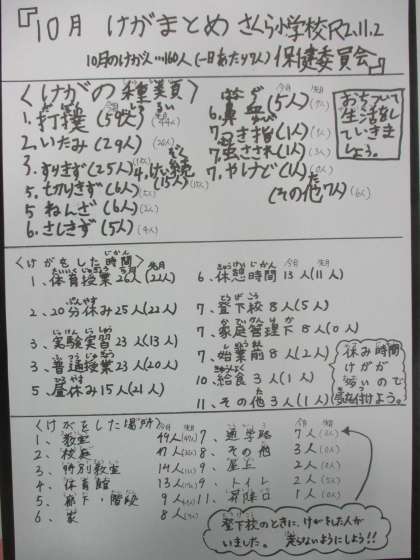 『10月 けがまとめ さくら小学校R2.11.2
10月のけが人…160人(一日あたり7人) 保健委員会』
〈けがの種類〉
1. 打撲
2. いたみ(29人)
3. すりきず(25人)
4. けい続(15人)
5. 切りきず(6人)
5 ねんざ(6人)
6. さしきず(5人)
6. 鼻血(5人)
7. つき指(1人)
7. 虫さされ(1人)
7. やけど(1人)
(その他7人)
おちついて
生活をし
ていきま
しょう。
〈けがをした時間〉
今月 先月
1. 体育授業 26人(22人)
2. 20分休み 25人(22人)
3. 実験実習 23人(13人)
3. 普通授業 23人(20人)
5. 昼休み 15人(21人)
6. 休憩時間 13人(11人)
7. 登下校 8人(5人)
7. 家庭管理下 8人(0人)
7. 始業前 8人(2人)
10. 給食 3人(1人)
11. その他 3人(1人)
休み時間
けがが
多いので
気を付けよう。
〈けがをした場所〉
1、教室 49人
2、校庭 47人
3、特別教室 14人
4、体育館 13人
5、廊下・階段 9人
6、家 8人
7、通学路 7人
8、その他 3人
9、屋上 2人
9、トイレ 2人
11、昇降口 1人
登下校のときに、けがをした人が
いました。 走らないようにしよう!!